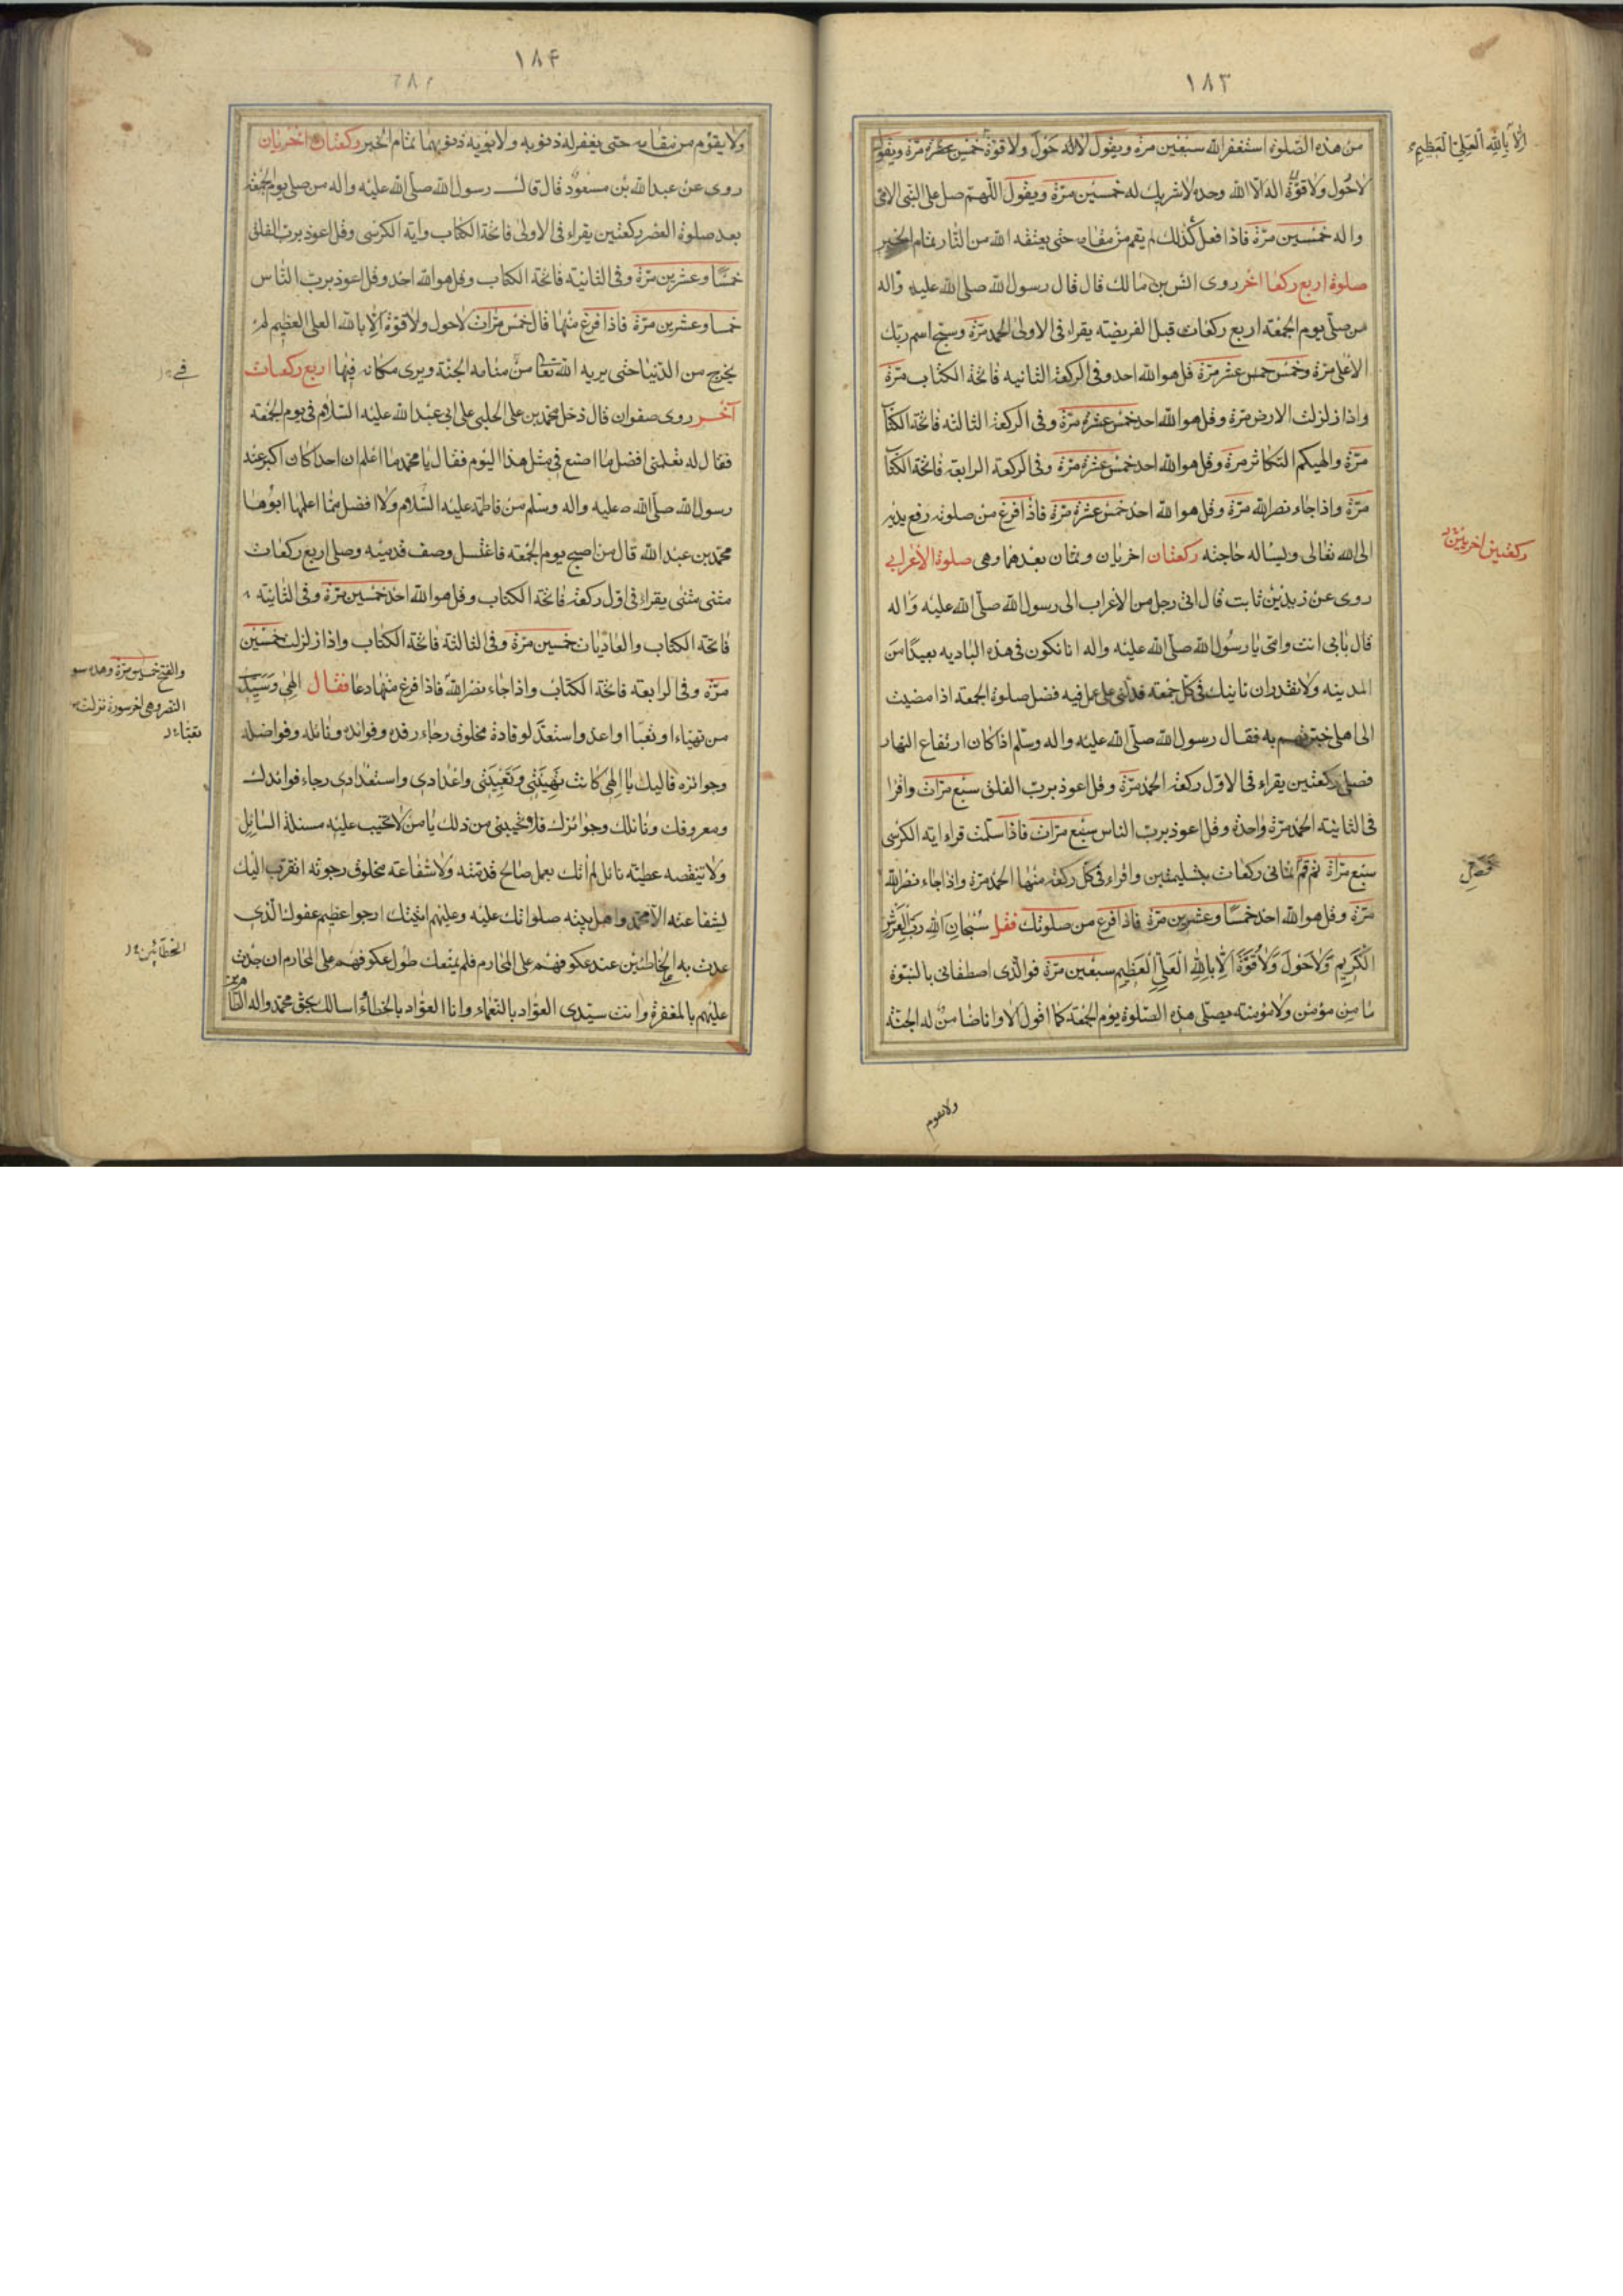 ١٨٣
من هذه الصّلوة استغفر الله سبعين مرة ويقول لا اله حَول ولا قوة خمسين عشره مرّة ويقول
الّا بِاللّهِ العَلِيّ العَظيمِ
لاحَول ولا قوّة اله الّا الله وحده لا شريك له خمسين مرّة ويقول اللّهمّ صل على النبى الامّى
واله خمسين مرّة فاذا فعل كذلك لم يقم من مقامه حتى يعتقه الله من النّار بتمام الخبر
صلوة اربع ركعا اخر روى انس بن مالك قال قال رسول الله صلى الله عليه واله
من صلّى يوم الجمعة اربع ركعات قبل الفريضة يقراء فى الاولى الحمد مرّة وسبح اسم ربّك
الاعلى مرّة وخمس خمس عشر مرّة قل هو الله احد وفى الركعة الثانيه فاتحة الكتاب مرّة
واذا زلزلت الارض مرّة وقل هو الله احد خمس عشرة مرّة وفى الركعة الثالثه فاتحة الكتا
مرّة والهيكم التكاثر مرة وقل هو الله احد خمس عشرة مرّة وفى الركعة الرابعة فاتحة الكتا
مرّة واذا جاء نصر الله مرّة وقل هو الله احد خمس عشرة مرّة فاذا فرغ من صلوته رفع يديه
الى الله تعالى ويساله حاجته ركعتان اخريان وثمان بعدهما وهى صلوة الاعرابي
ركعتين اخريين
روى عن زيد بن ثابت قال اتى رجل من الاعراب الى رسول الله صلّى الله عليه واله
قال بابى انت وامى يا رسول الله صلّى الله عليه واله انا نكون فى هذه الباديه بعيدًا من
المدينه ولا نقدر ان ناتيك فى كل جمعة فدلنى على عمل فيه فضل صلوة الجمعة اذا مضيت
الى اهلى خبرتهم به فقال رسول الله صلّى الله عليه واله وسلم اذا كان ارتفاع النهار
فصلى ركعتين يقراء فى الاوّل ركعة الحمد مرّة وقل اعوذ برب الفلق سبع مرّات واقرا
فى الثانيه الحمد مرّة واحدة وقل اعوذ بربّ الناس سبع مرّات فاذا سلمت قراء اية الكرسى
سبع مرّاة ثم قم ثمانى ركعات بتسليمتين واقراء فى كل ركعة منها الحمد مرّة واذا جاء نصر الله
مرّة وقل هو الله احد خمسًا وعشرين مرّة فاذا فرغ من صلوتك فقل سُبحانَ اللهِ ربّ العَرش
الكريم وَلاحَولَ وَلاقُوّةَ اِلّا باللهِ العَلِىّ العَظيم سبعين مرّة فو الّذى اصطفانى بالنبوّة
ما من مؤمن ولا مؤمنة يصلّى هذه الصّلوة يوم الجمعة كما اقول الا وانا ضامن له الجنّة
ولا يقوم
١٨۴
ولا يقوم من مقامه حتى يغفر له ذنوبه ولابويه ذنوبهما تمام الخبر ركعتان اخريان
روى عن عبد الله بن مسعود قال قال رسول الله صلّى الله عليه واله من صلى يوم الجمعة
بعد صلوة العصر ركعتين يقراء فى الاولى فاتحة الكتاب واية الكرسى وقل اعوذ برب الفلق
خمسًا وعشرين مرّة وفى الثانية فاتحة الكتاب وقل هو الله احد وقل اعوذ بربّ النّاس
خمسا وعشرين مرّة فاذا فرغ منها قال خمس مرّات لاحول ولا قوّة اِلّا بالله العلى العظيم لم
يخرج من الدّنيا حتى يريه الله تعا من منامه الجنّة ويرى مكانه فيها اربع ركعات
فى
آخر روى صفوان قال دخل محمّد بن على الحلبى على ابى عبد الله عليه السّلام فى يوم الجمعة
فقال له تعلمنى افضل ما اصنع فى مثل هذا اليوم فقال يا محمد ما اعلم ان احدا كان اكبر عند
رسول الله صلّى الله عليه واله وسلم من فاطمة عليه السّلام ولا افضل مما اعلمها ابوها
محمّد بن عبد الله قال من اصبح يوم الجمعة فاغتسل وصف قدميه وصلى اربع ركعات
مثنى مثنى يقراء فى اوّل ركعة فاتحة الكتاب وقل هو الله احد خمسين مرّة وفى الثانية
فاتحة الكتاب والعاديات خمسين مرّة وفى الثالثة فاتحة الكتاب واذا زلزلت خمسين
مرّة وفى الرابعة فاتحة الكتاب واذا جاء نصر الله فاذا فرغ منها دعا فقال الهى وَسَيّدى
والفتح خمسين مرّة وهذه سو
النصر وهى اخر سورة نزلت
من تهيّاء او تعبّا او اعد واستعدّ لوفادة مخلوق رجاء رفده وفوائده ونائله وفواضله
تعبّاء
وجوائزه فاليك يا الهى كانت تَهيئتى وَتَعبِيَتى واعدادى واستعدادى رجاء فوائدك
ومعروفك ونائلك وجوائزك فلا تخيبنى من ذلك يا من لا تخيب عليه مسئلة السّائل
ولا تنقصه عطيّة نائل لم اتك بعمل صالح قدمته ولا شفاعة مخلوق رجوته اتقرّب اليك
بشفاعته الّا محمّد واهل بيته صلواتك عليه وعليهم اتيتك ارجوا عظيم عفوك الّذى
عدت به الخاطئين عند عكوفهم على المحارم فلم يمنعك طول عكوفهم على المحارم ان جدت
الخطّائين
عليهم بالمغفرة وانت سيّدى العوّاد بالنّعماء وانا العوّاد بالخطاء اسالك بحق محمد واله الطا
هرين